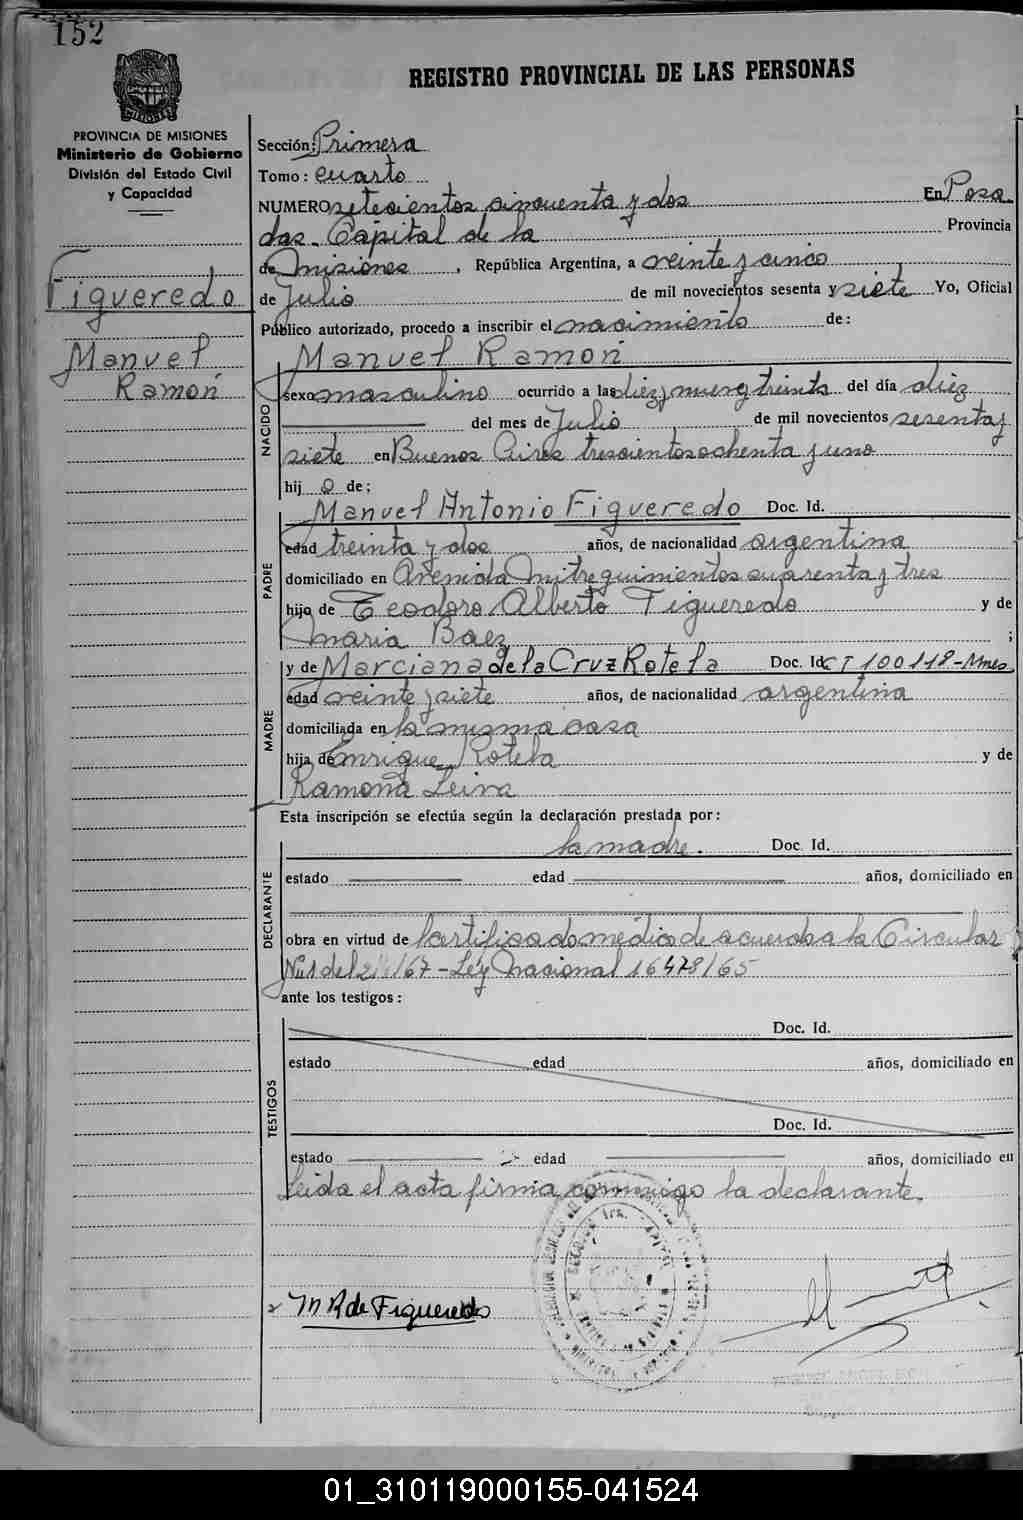 152
REGISTRO PROVINCIAL DE LAS PERSONAS
PROVINCIA DE MISIONES
Ministerio de Gobierno
División del Estado Civil
y Capacidad
Figueredo
Manuel
Ramón
Sección: Primera
Tomo: cuarto
NUMERO setecientos cincuenta y dos En Posa
das. Capital de la Provincia
de Misiones, República Argentina, a veinte y cinco
de Julio de mil novecientos sesenta y siete Yo, Oficial
Público autorizado, procedo a inscribir el nacimiento de:
NACIDO
Manuel Ramón
sexo masculino ocurrido a las diez y nueve y treinta del día diez
del mes de Julio de mil novecientos sesenta y
siete en Buenos Aires trescientos ochenta y uno
hij o de;
PADRE
Manuel Antonio Figueredo Doc. Id.
edad treinta y dos años, de nacionalidad argentina
domiciliado en Avenida Mitre quinientos cuarenta y tres
hijo de Teodoro Alberto Figueredo y de
Maria Baez ;
MADRE
y de Marciana de la Cruz Rotela Doc. Id. CI 100118-Mnes
edad veinte y siete años, de nacionalidad argentina
domiciliada en la misma casa
hija de Enrique Rotela y de
Ramona Leiva
Esta inscripción se efectúa según la declaración prestada por:
DECLARANTE
la madre. Doc. Id.
estado edad años, domiciliado en
obra en virtud de certificado médico de acuerdo a la Circular
del /67 - Ley Nacional 16478/65
ante los testigos:
TESTIGOS
Doc. Id.
estado edad años, domiciliado en
Doc. Id.
estado edad años, domiciliado en
Leida el acta firma conmigo la declarante.
M R de Figueredo
01_310119000155-041524